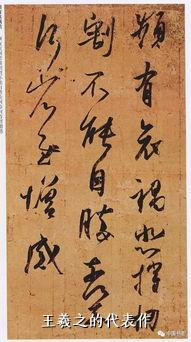 頻有哀禍悲摧切
割不能自勝奈何奈
何省慰增感
王羲之的代表作